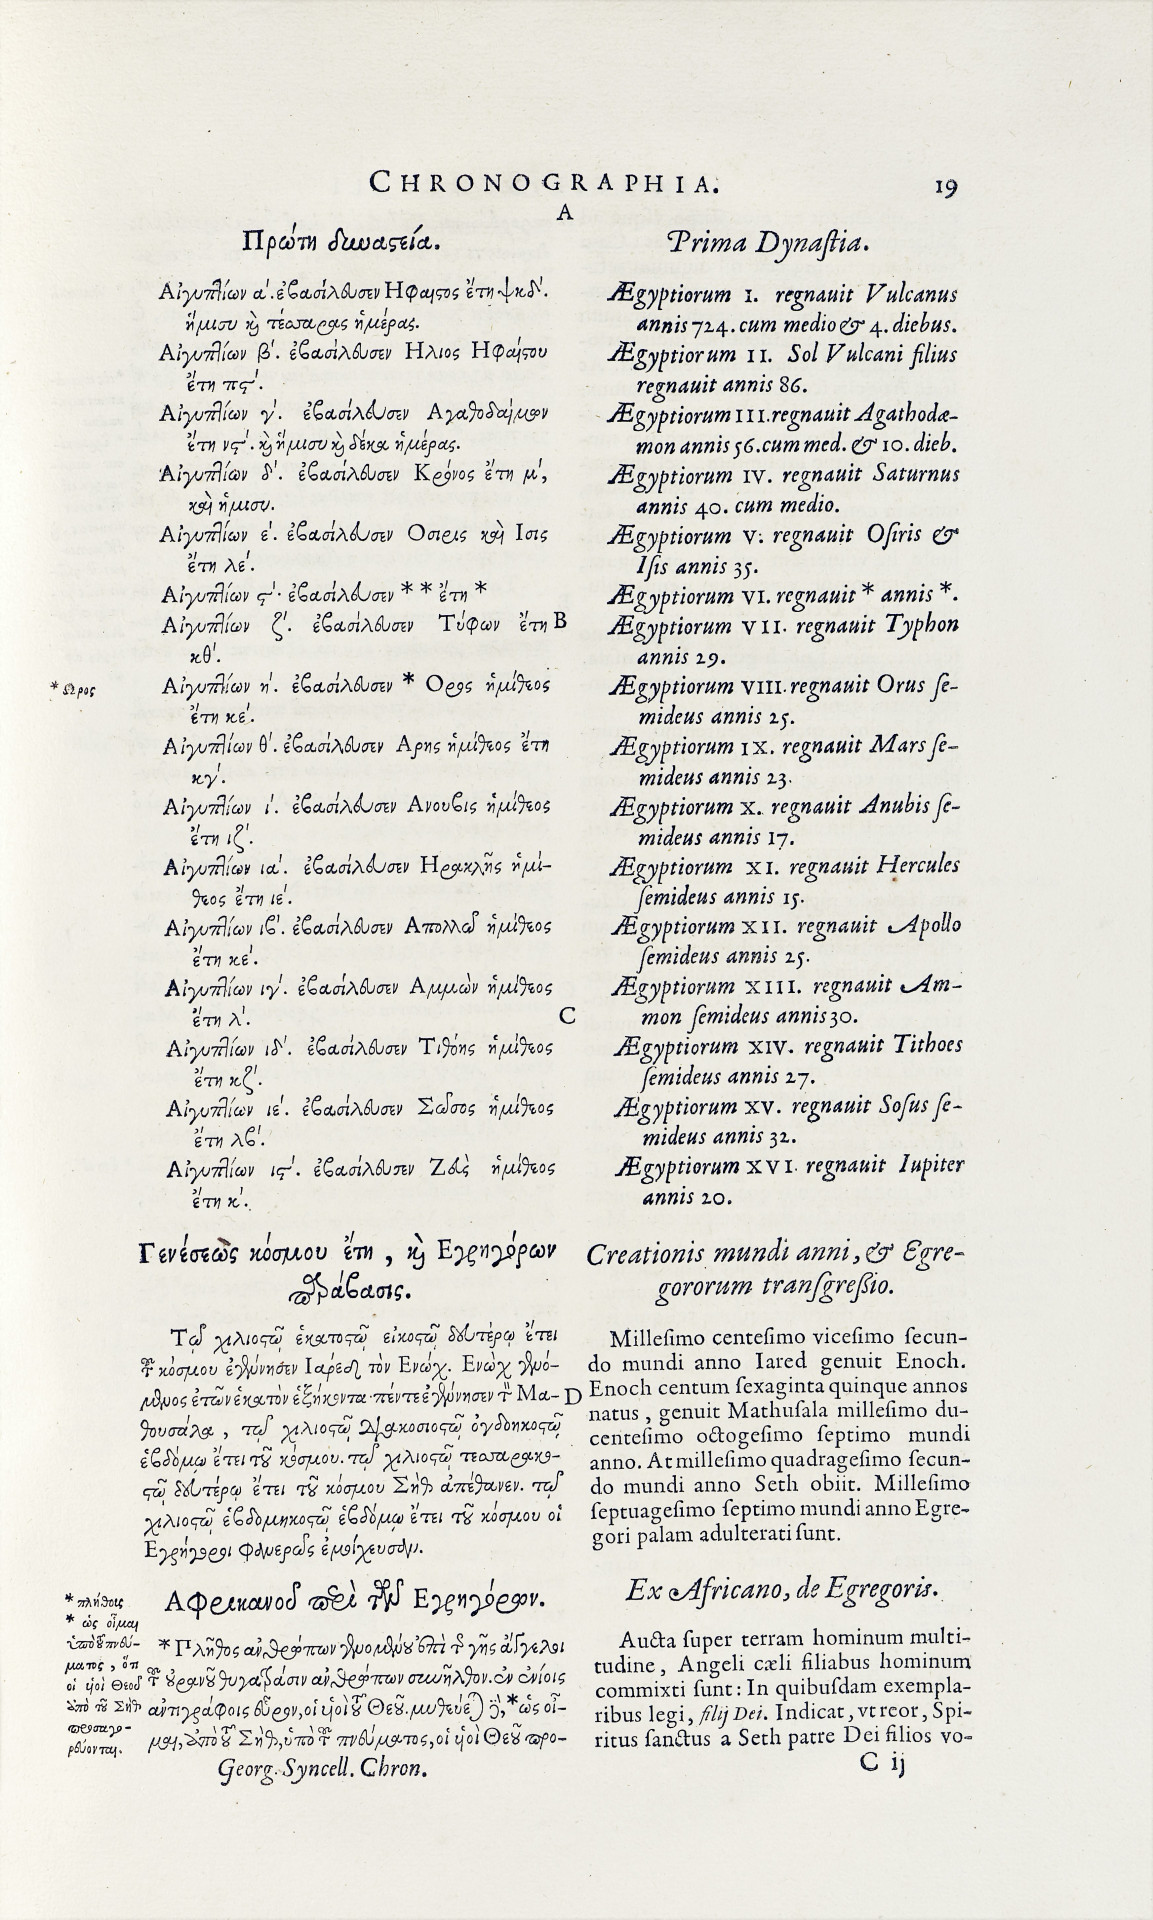 CHRONOGRAPHIA.
19
A
Πρώτη δυναστεία.
Αἰγυπτίων α´. ἐβασίλευσεν Ηφαιστος ἔτη ψκδ´.
ἥμισυ καὶ τέσσαρας ἡμέρας.
Αἰγυπτίων β´. ἐβασίλευσεν Ηλιος Ηφαίστου
ἔτη πϛ´.
Αἰγυπτίων γ´. ἐβασίλευσεν Αγαθοδαίμων
ἔτη νϛ´. καὶ ἥμισυ καὶ δέκα ἡμέρας.
Αἰγυπτίων δ´. ἐβασίλευσεν Κρόνος ἔτη μ´,
καὶ ἥμισυ.
Αἰγυπτίων ε´. ἐβασίλευσεν Οσιρις καὶ Ισις
ἔτη λε´.
Αἰγυπτίων ϛ´. ἐβασίλευσεν * * ἔτη *
Αἰγυπτίων ζ´. ἐβασίλευσεν Τύφων ἔτη
B
κθ´.
* Ωρος
Αἰγυπτίων η´. ἐβασίλευσεν * Ορος ἡμίθεος
ἔτη κε´.
Αἰγυπτίων θ´. ἐβασίλευσεν Αρης ἡμίθεος ἔτη
κγ´.
Αἰγυπτίων ι´. ἐβασίλευσεν Ανουβις ἡμίθεος
ἔτη ιζ´.
Αἰγυπτίων ια´. ἐβασίλευσεν Ηρακλῆς ἡμί-
θεος ἔτη ιε´.
Αἰγυπτίων ιβ´. ἐβασίλευσεν Απολλω ἡμίθεος
ἔτη κε´.
Αἰγυπτίων ιγ´. ἐβασίλευσεν Αμμὼν ἡμίθεος
ἔτη λ´.
C
Αἰγυπτίων ιδ´. ἐβασίλευσεν Τιθόης ἡμίθεος
ἔτη κζ´.
Αἰγυπτίων ιε´. ἐβασίλευσεν Σῶσος ἡμίθεος
ἔτη λβ´.
Αἰγυπτίων ιϛ´. ἐβασίλευσεν Ζεὺς ἡμίθεος
ἔτη κ´.
Γενέσεως κόσμου ἔτη, καὶ Εγρηγόρων
παράβασις.
Τῷ χιλιοστῷ ἑκατοστῷ εἰκοστῷ δευτέρῳ ἔτει
τοῦ κόσμου ἐγέννησεν Ιαρεδ τὸν Ενώχ. Ενὼχ γενό-
μενος ἐτῶν ἑκατὸν ἑξήκοντα πέντε ἐγέννησεν τὸν Μα-
D
θουσάλα, τῷ χιλιοστῷ διακοσιοστῷ ὀγδοηκοστῷ
ἑβδόμω ἔτει τοῦ κόσμου. τῷ χιλιοστῷ τεσσαρακο-
στῷ δευτέρῳ ἔτει τοῦ κόσμου Σὴθ ἀπέθανεν. τῷ
χιλιοστῷ ἑβδομηκοστῷ ἑβδόμῳ ἔτει τοῦ κόσμου οἱ
Εγρήγοροι φανερῶς ἐμοίχευσαν.
Αφρικανοῦ περὶ τῶν Εγρηγόρων.
* Πλῆθος ἀνθρώπων γενομένου ἐπὶ τῆς γῆς ἄγγελοι
τοῦ οὐρανοῦ θυγατράσιν ἀνθρώπων συνῆλθον. ἐν ἐνίοις
ἀντιγράφοις εὗρον, οἱ υἱοὶ τοῦ Θεοῦ. μυθεύεται δὲ, * ὡς οἶ-
μαι, ἀπὸ τοῦ Σὴθ, ὑπὸ τοῦ πνεύματος, οἱ υἱοὶ Θεοῦ προ-
* πλήθοις
* ὡς οἶμαι
ὑπὸ τοῦ πνεύ-
ματος, ὅτι
οἱ υἱοὶ Θεοῦ
ἀπὸ τοῦ Σὴθ
προσαγο-
ρεύονται.
Georg. Syncell. Chron.
Prima Dynaſtia.
Ægyptiorum I. regnauit Vulcanus
annis 724. cum medio & 4. diebus.
Ægyptiorum II. Sol Vulcani filius
regnauit annis 86.
Ægyptiorum III. regnauit Agathodæ-
mon annis 56. cum med. & 10. dieb.
Ægyptiorum IV. regnauit Saturnus
annis 40. cum medio.
Ægyptiorum V. regnauit Oſiris &
Iſis annis 35.
Ægyptiorum VI. regnauit * annis *.
Ægyptiorum VII. regnauit Typhon
annis 29.
Ægyptiorum VIII. regnauit Orus ſe-
mideus annis 25.
Ægyptiorum IX. regnauit Mars ſe-
mideus annis 23.
Ægyptiorum X. regnauit Anubis ſe-
mideus annis 17.
Ægyptiorum XI. regnauit Hercules
ſemideus annis 15.
Ægyptiorum XII. regnauit Apollo
ſemideus annis 25.
Ægyptiorum XIII. regnauit Am-
mon ſemideus annis 30.
Ægyptiorum XIV. regnauit Tithoes
ſemideus annis 27.
Ægyptiorum XV. regnauit Soſus ſe-
mideus annis 32.
Ægyptiorum XVI. regnauit Iupiter
annis 20.
Creationis mundi anni, & Egre-
gororum tranſgreßio.
Milleſimo centeſimo viceſimo ſecun-
do mundi anno Iared genuit Enoch.
Enoch centum ſexaginta quinque annos
natus, genuit Mathuſala milleſimo du-
centeſimo octogeſimo ſeptimo mundi
anno. At milleſimo quadrageſimo ſecun-
do mundi anno Seth obiit. Milleſimo
ſeptuageſimo ſeptimo mundi anno Egre-
gori palam adulterati ſunt.
Ex Africano, de Egregoris.
Aucta ſuper terram hominum multi-
tudine, Angeli cæli filiabus hominum
commixti ſunt: In quibuſdam exempla-
ribus legi, filij Dei. Indicat, vt reor, Spi-
ritus ſanctus a Seth patre Dei filios vo-
C ij